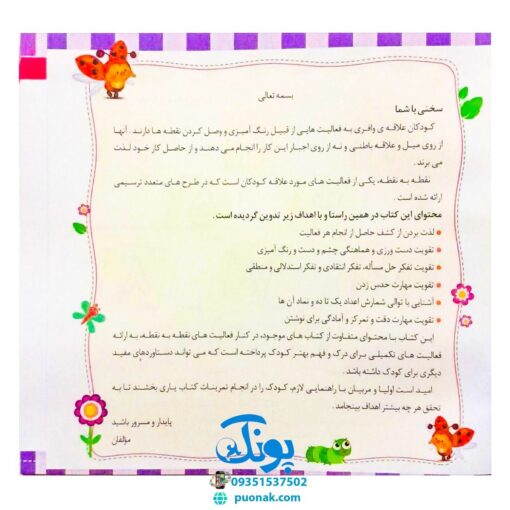 بسمه تعالی
سخنی با شما
کودکان علاقه ی وافری به فعالیت هایی از قبیل رنگ آمیزی و وصل کردن نقطه ها دارند . آنها
از روی میل و علاقه باطنی و نه از روی اجبار این کار را انجام می دهند و از حاصل کار خود لذت
می برند .
نقطه به نقطه، یکی از فعالیت های مورد علاقه کودکان است که در طرح های متعدد ترسیمی
ارائه شده است .
محتوای این کتاب در همین راستا و با اهداف زیر تدوین گردیده است .
لذت بردن از کشف حاصل از انجام هر فعالیت
تقویت دست ورزی و هماهنگی چشم و دست و رنگ آمیزی
تقویت تفکر حل مسأله، تفکر انتقادی و تفکر استدلالی و منطقی
تقویت مهارت حدس زدن
آشنایی با توالی شمارش اعداد یک تا ده و نماد آن ها
تقویت مهارت دقت و تمرکز و آمادگی برای نوشتن
این کتاب با محتوای متفاوت از کتاب های موجود، در کنار فعالیت های نقطه به نقطه، به ارائه
فعالیت های تکمیلی برای درک و فهم بهتر کودک پرداخته است که می تواند دستاوردهای مفید
دیگری برای کودک داشته باشد .
امید است اولیا و مربیان با راهنمایی لازم، کودک را در انجام تمرینات کتاب یاری بخشند تا به
تحقق هر چه بیشتر اهداف بینجامد .
پایدار و مسرور باشید
مؤلفان
پونک
09351537502
puonak.com